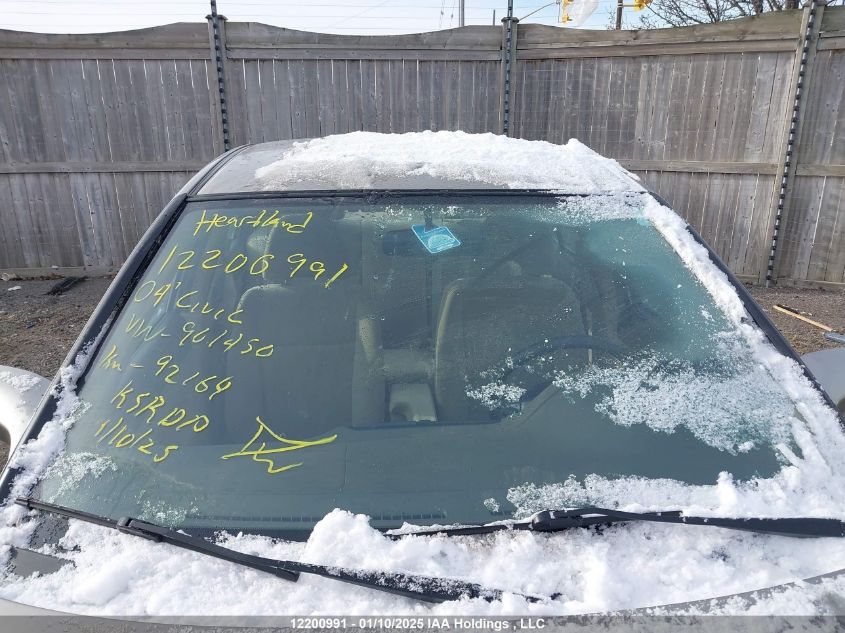 Heartland
12200991
04' Civic
VIN - 961450
Km - 92164
KSRDD
1/10/25
12200991 - 01/10/2025 IAA Holdings, LLC